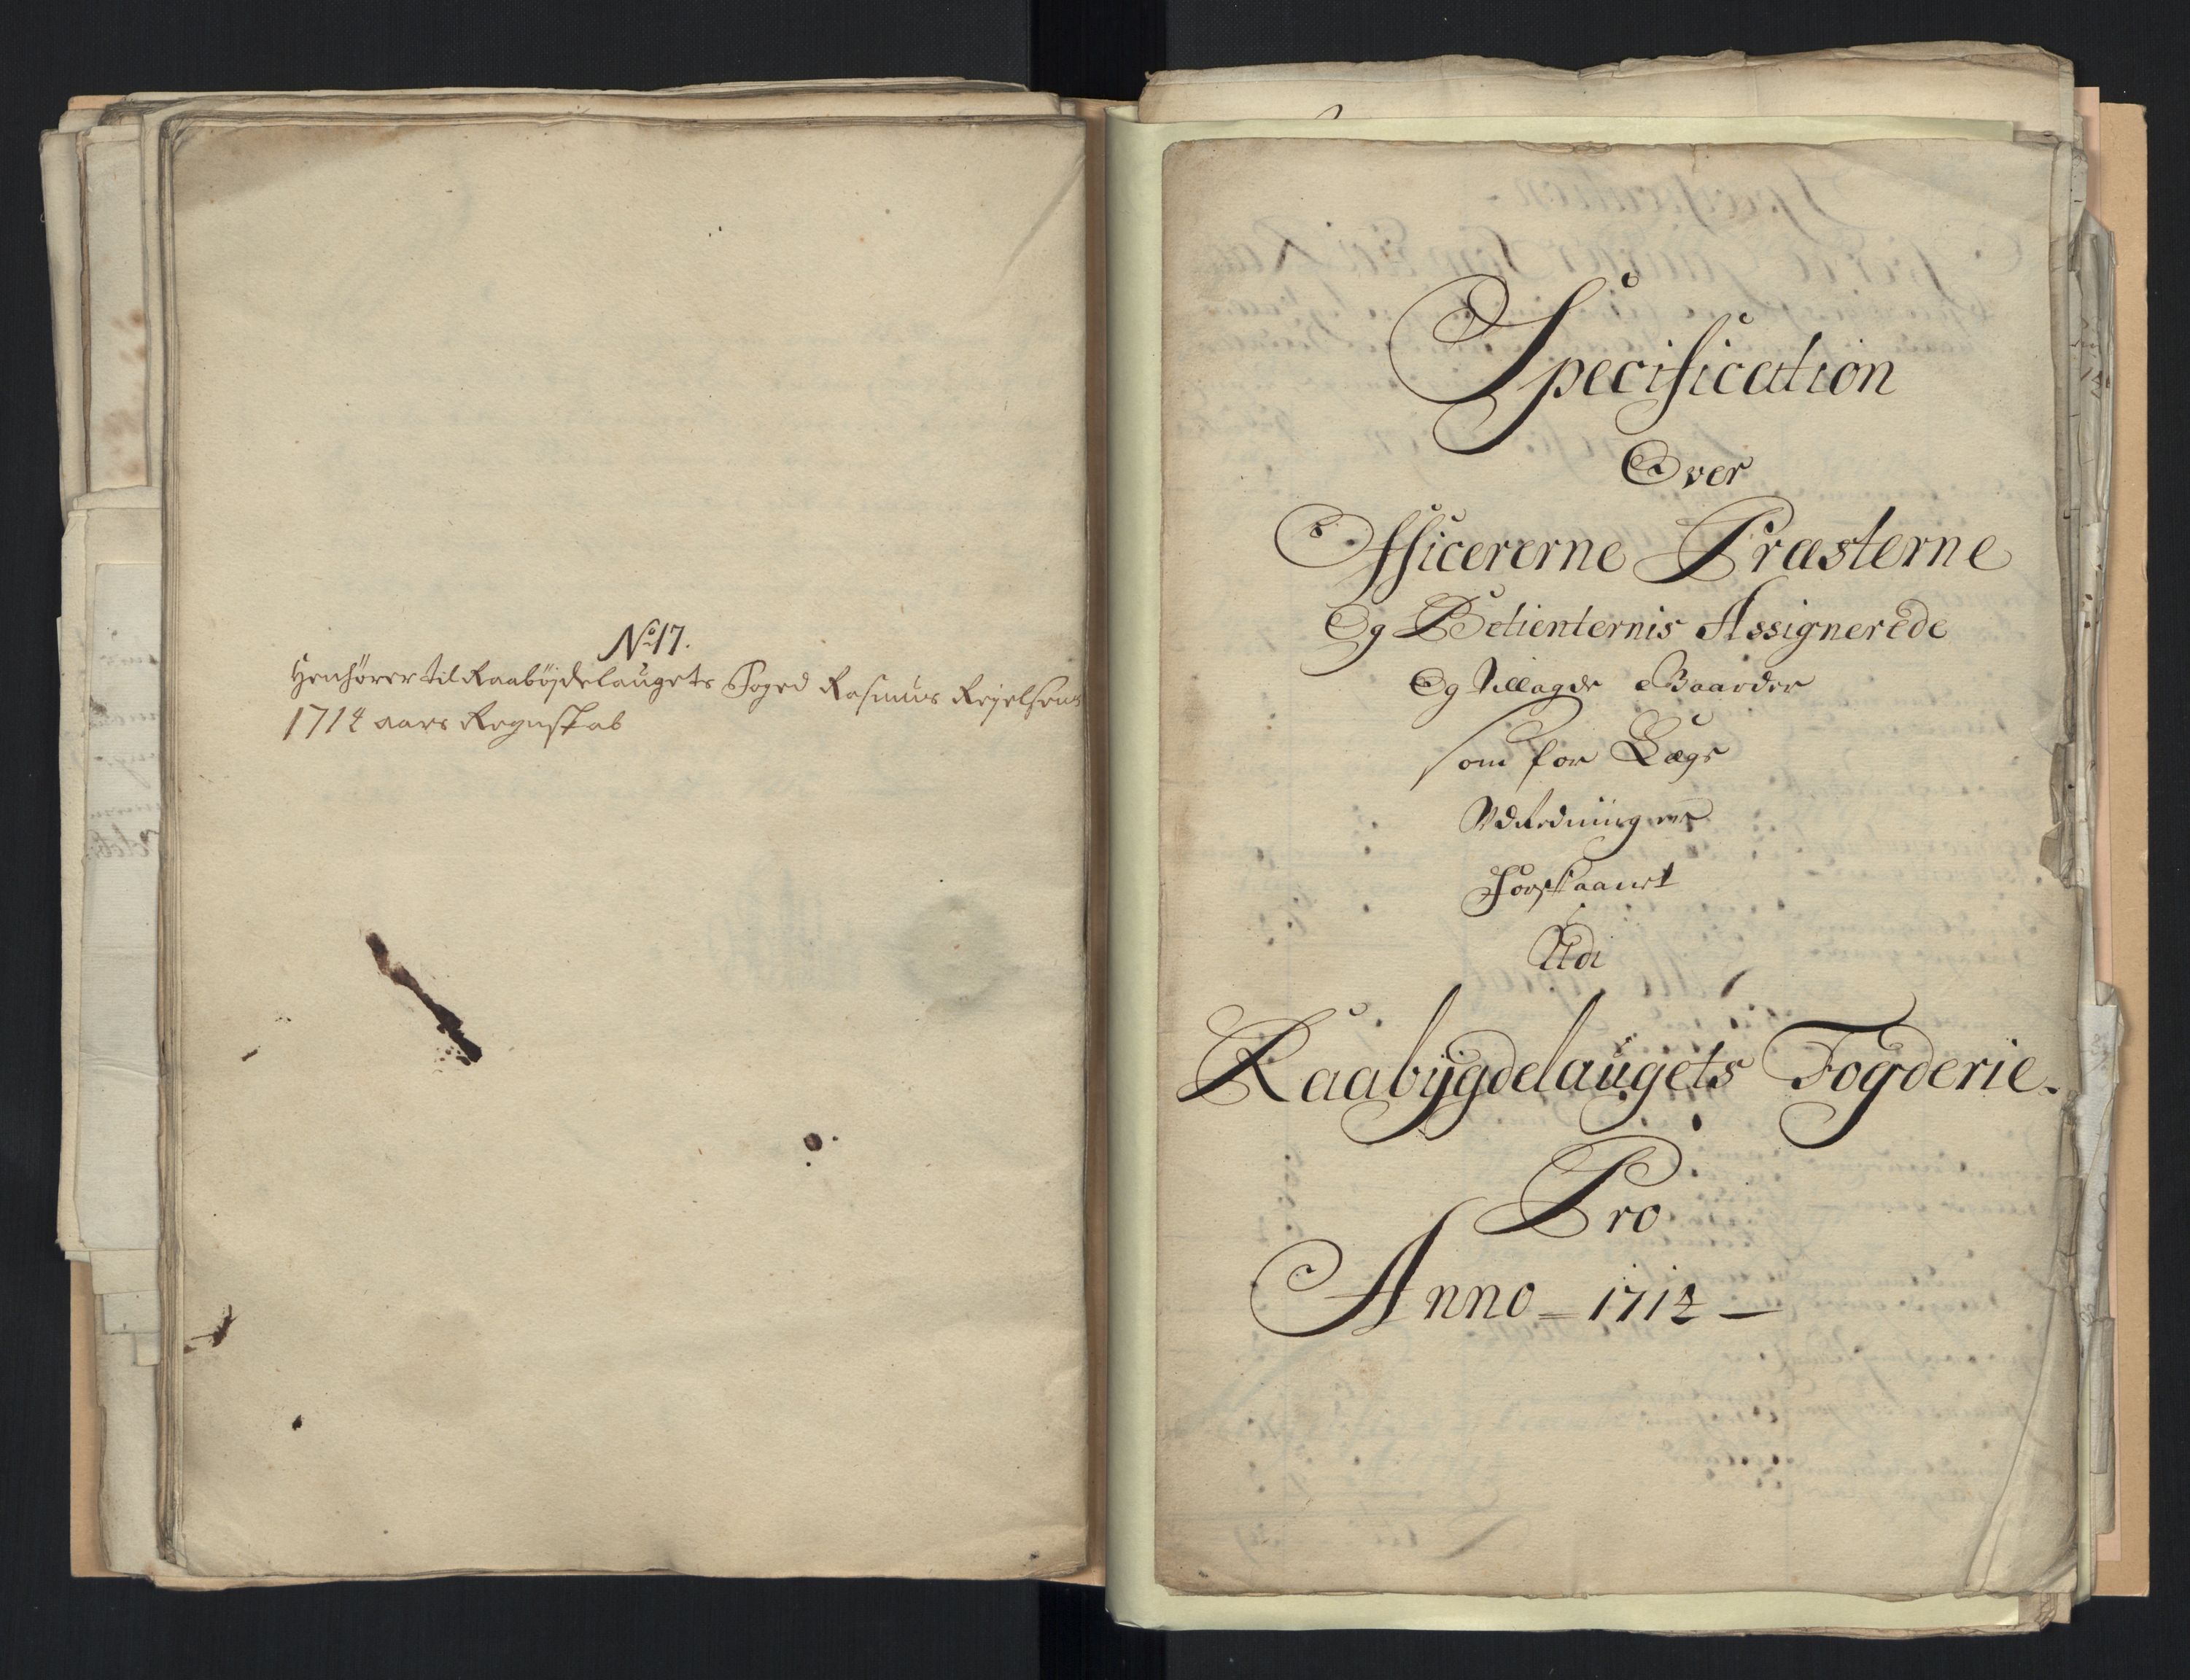 No 17.
Henhører til Raabøjdelaugets Foged Rasmus
1712 aars Regnskab
Specification
Over
Officererne Præsterne
Og Betienternis Assignerede
Og Tillagde Gaarder
som for Lægs
Udredninger
Forskaanet
Udi
Raabÿgdelaugets Fogderie.
Pro
Anno - 1712 -